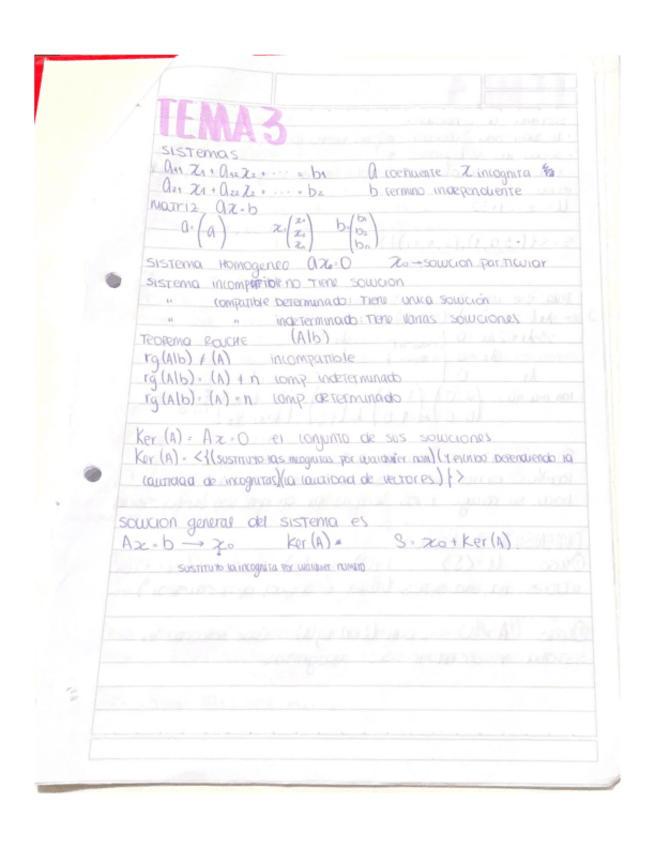 TEMA 3
SISTEMAS
a₁₁ x₁ + a₁₂ x₂ + ... = b₁ a coeficiente x incognita
a₂₁ x₁ + a₂₂ x₂ + ... = b₂ b termino independiente
MATRIZ ax=b
a=(a) x=(x₁ x₂ xₙ) b=(b₁ b₂ bₙ)
SISTEMA Homogeneo ax=0 x₀→solucion particular
SISTEMA incompatible no TIENE SOLUCION
" compatible Determinado: Tiene unica solución
" " indeterminado: Tiene varias soluciones
TEOREMA ROUCHE (A|b)
rg(A|b) ≠ (A) incompatible
rg(A|b) = (A) ≠ n comp indeterminado
rg(A|b) = (A) = n comp determinado
Ker (A) = Ax=0 el conjunto de sus soluciones
Ker (A) = <{(sustituyo las incognitas por cualquier num)(y escribo dependiendo la
cantidad de incognitas)(la cantidad de vectores)}>
SOLUCION general del SISTEMA es
Ax=b → x₀ Ker (A) = S = x₀ + Ker(A)
sustituyo la incognita por cualquier numero